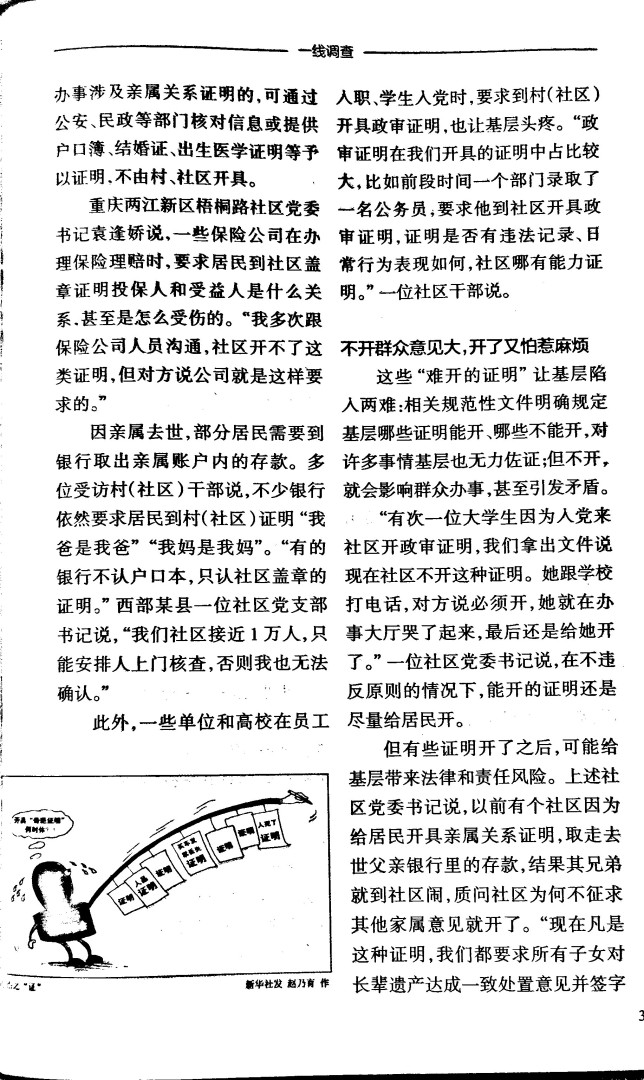 一线调查
办事涉及亲属关系证明的,可通过
公安、民政等部门核对信息或提供
户口簿、结婚证、出生医学证明等予
以证明,不由村、社区开具。
重庆两江新区梧桐路社区党委
书记袁逢娇说,一些保险公司在办
理保险理赔时,要求居民到社区盖
章证明投保人和受益人是什么关
系,甚至是怎么受伤的。“我多次跟
保险公司人员沟通,社区开不了这
类证明,但对方说公司就是这样要
求的。”
因亲属去世,部分居民需要到
银行取出亲属账户内的存款。多
位受访村(社区)干部说,不少银行
依然要求居民到村(社区)证明“我
爸是我爸”“我妈是我妈”。“有的
银行不认户口本,只认社区盖章的
证明。”西部某县一位社区党支部
书记说,“我们社区接近1万人,只
能安排人上门核查,否则我也无法
确认。”
此外,一些单位和高校在员工
开具“奇葩证明”
何时休?
证明
人品
证明
证明
证明
证明
证明
人死了
证明
之“证”
新华社发 赵乃育 作
入职、学生入党时,要求到村(社区)
开具政审证明,也让基层头疼。“政
审证明在我们开具的证明中占比较
大,比如前段时间一个部门录取了
一名公务员,要求他到社区开具政
审证明,证明是否有违法记录、日
常行为表现如何,社区哪有能力证
明。”一位社区干部说。
不开群众意见大,开了又怕惹麻烦
这些“难开的证明”让基层陷
入两难:相关规范性文件明确规定
基层哪些证明能开、哪些不能开,对
许多事情基层也无力佐证;但不开,
就会影响群众办事,甚至引发矛盾。
“有次一位大学生因为入党来
社区开政审证明,我们拿出文件说
现在社区不开这种证明。她跟学校
打电话,对方说必须开,她就在办
事大厅哭了起来,最后还是给她开
了。”一位社区党委书记说,在不违
反原则的情况下,能开的证明还是
尽量给居民开。
但有些证明开了之后,可能给
基层带来法律和责任风险。上述社
区党委书记说,以前有个社区因为
给居民开具亲属关系证明,取走去
世父亲银行里的存款,结果其兄弟
就到社区闹,质问社区为何不征求
其他家属意见就开了。“现在凡是
这种证明,我们都要求所有子女对
长辈遗产达成一致处置意见并签字
3